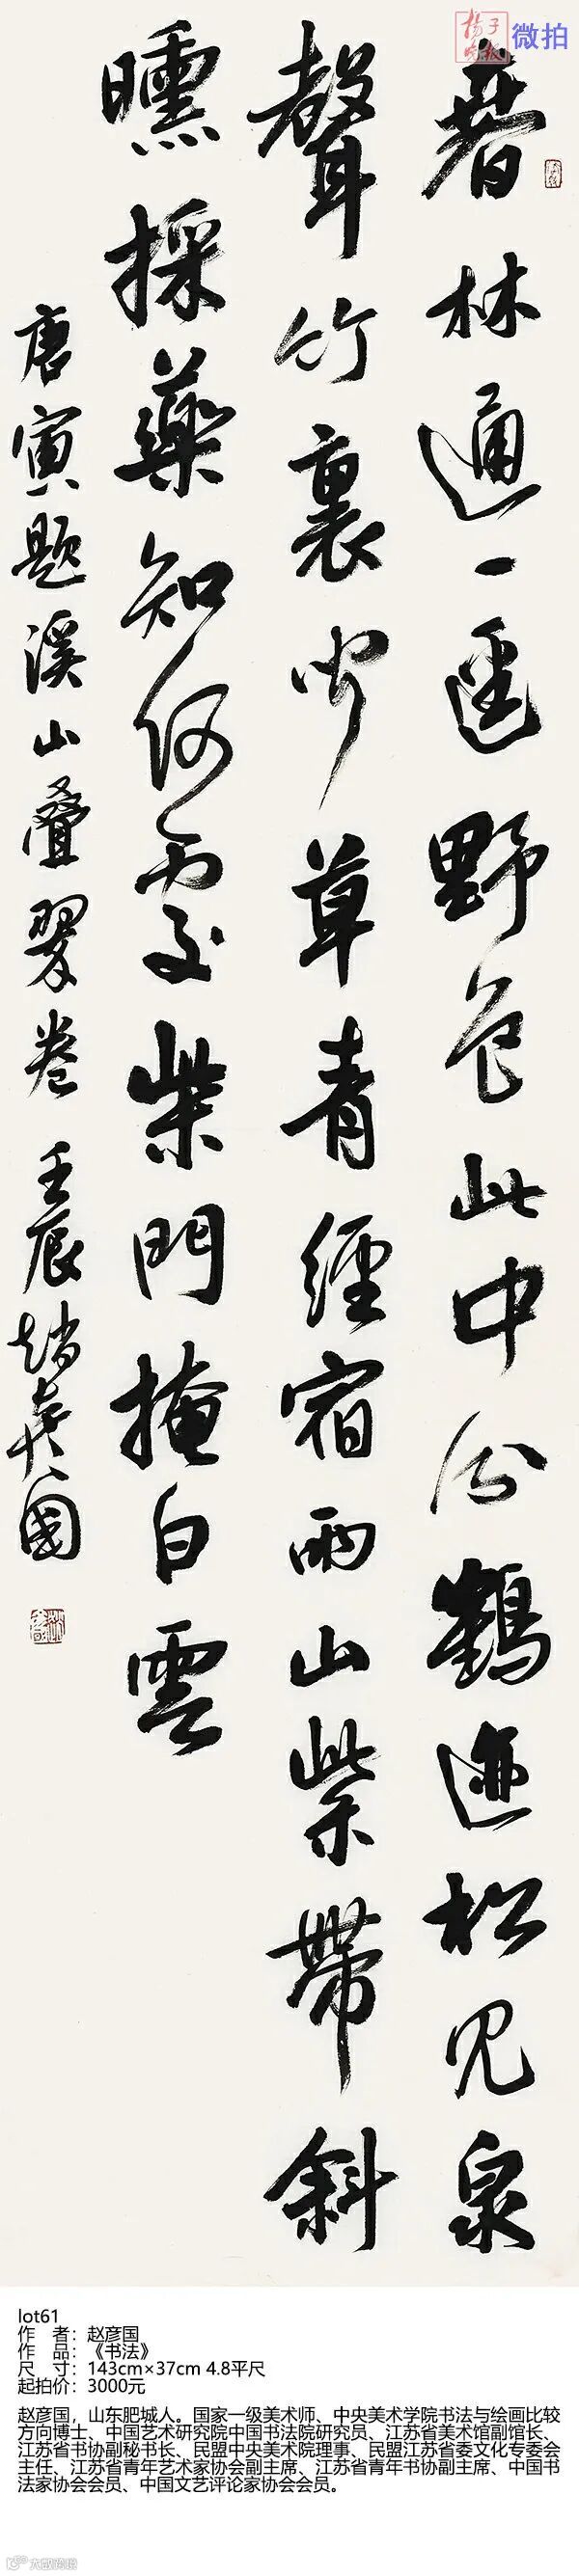 扬子晚报
微拍
春林通一径野色此中分鶴迹松見泉
聲竹裏聞草青經宿雨山紫帶斜
曛採藥知何處柴門掩白雲
唐寅题溪山叠翠卷 壬辰趙彦國
lot61
作 者：赵彦国
作 品：《书法》
尺 寸：143cm×37cm 4.8平尺
起拍价：3000元
赵彦国，山东肥城人。国家一级美术师、中央美术学院书法与绘画比较
方向博士、中国艺术研究院中国书法院研究员、江苏省美术馆副馆长、
江苏省书协副秘书长、民盟中央美术院理事、民盟江苏省委文化专委会
主任、江苏省青年艺术家协会副主席、江苏省青年书协副主席、中国书
法家协会会员、中国文艺评论家协会会员。